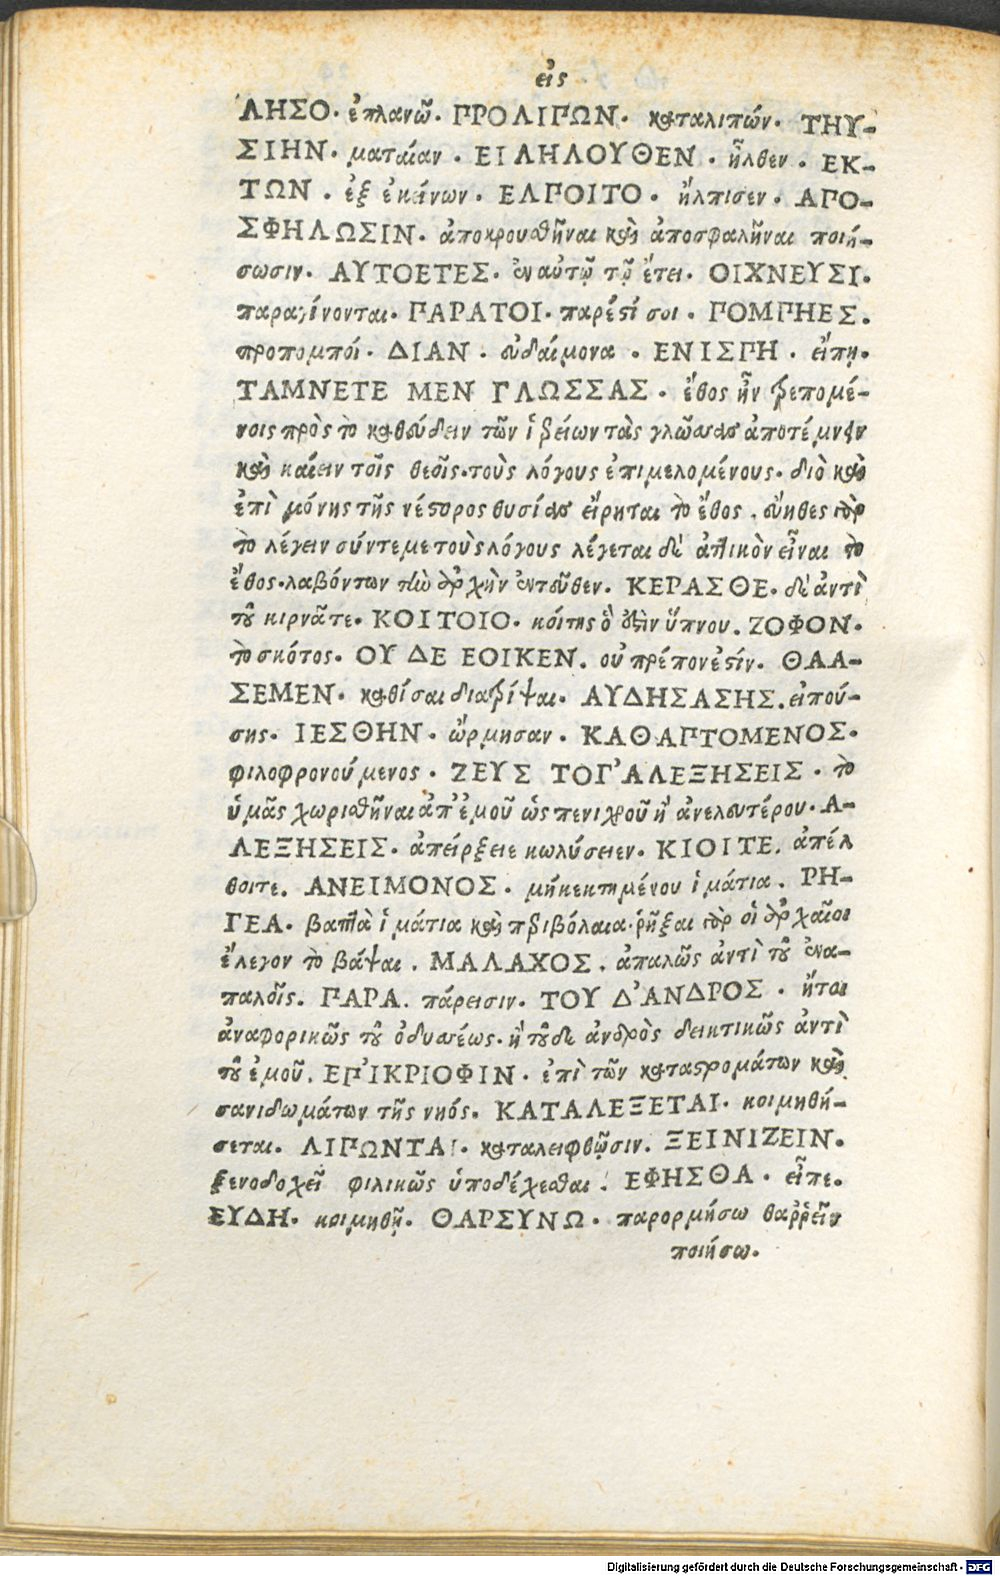 εἰς
ΛΗΣΟ. ἐπλανῶ. ΠΡΟΛΙΠΩΝ. καταλιπών. ΤΗΥ-
ΣΙΗΝ. ματαίαν. ΕΙΛΗΛΟΥΘΕΝ. ἦλθεν. ΕΚ-
ΤΩΝ. ἐξ ἐκείνων. ΕΛΠΟΙΤΟ. ἤλπισεν. ΑΠΟ-
ΣΦΗΛΩΣΙΝ. ἀποκρουσθῆναι καὶ ἀποσφαλῆναι ποιή-
σωσιν. ΑΥΤΟΕΤΕΣ. ἐν αὐτῷ τῷ ἔτει. ΟΙΧΝΕΥΣΙ.
παραγίνονται. ΠΑΡΑΤΟΙ. παρέστί σοι. ΠΟΜΠΗΕΣ.
προπομποί. ΔΙΑΝ. εὐδαίμονα. ΕΝΙΣΠΗ. εἴπῃ.
ΤΑΜΝΕΤΕ ΜΕΝ ΓΛΩΣΣΑΣ. ἔθος ἦν τρεπομέ-
νοις πρὸς τὸ καθεύδειν τῶν ἱερείων τὰς γλώσσας ἀποτέμνειν
καὶ καίειν τοῖς θεοῖς. τοὺς λόγους ἐπιμελομένους. διὸ καὶ
ἐπὶ μόνης τῆς νέστορος θυσίας εἴρηται τὸ ἔθος. σύνηθες γὰρ
τὸ λέγειν σύντεμε τοὺς λόγους λέγεται δὲ ἀττικὸν εἶναι τὸ
ἔθος. λαβόντων τὴν ἀρχὴν ἐντεῦθεν. ΚΕΡΑΣΘΕ. δὲ ἀντὶ
τοῦ κιρνᾶτε. ΚΟΙΤΟΙΟ. κοίτης ὅ ἐστὶν ὕπνου. ΖΟΦΟΝ.
τὸ σκότος. ΟΥ ΔΕ ΕΟΙΚΕΝ. οὐ πρέπον ἐστίν. ΘΑΑ-
ΣΕΜΕΝ. καθίσαι διατρίψαι. ΑΥΔΗΣΑΣΗΣ. εἰπού-
σης. ΙΕΣΘΗΝ. ὥρμησαν. ΚΑΘΑΠΤΟΜΕΝΟΣ.
φιλοφρονούμενος. ΖΕΥΣ ΤΟΓ'ΑΛΕΞΗΣΕΙΣ. τὸ
ὑμᾶς χωρισθῆναι ἀπ' ἐμοῦ ὡς πενιχροῦ ἢ ἀνελευτέρου. Α-
ΛΕΞΗΣΕΙΣ. ἀπείρξειε κωλύσειεν. ΚΙΟΙΤΕ. ἀπέλ
θοιτε. ΑΝΕΙΜΟΝΟΣ. μὴ κεκτημένου ἱμάτια. ΡΗ-
ΓΕΑ. βαπτὰ ἱμάτια καὶ περιβόλαια. ῥῆξαι γὰρ οἱ ἀρχαῖοι
ἔλεγον τὸ βάψαι. ΜΑΛΑΧΟΣ. ἁπαλῶς ἀντὶ τοῦ ἐνα-
παλοῖς. ΠΑΡΑ. πάρεισιν. ΤΟΥ Δ'ΑΝΔΡΟΣ. ἤτοι
ἀναφορικῶς τοῦ ὀδυσσέως. ἢ τοῦδε ἀνδρὸς δεικτικῶς ἀντὶ
τοῦ ἐμοῦ. ΕΠ'ΙΚΡΙΟΦΙΝ. ἐπὶ τῶν καταστρομάτων καὶ
σανιδωμάτων τῆς νηός. ΚΑΤΑΛΕΞΕΤΑΙ. κοιμηθή-
σεται. ΛΙΠΩΝΤΑΙ. καταλειφθῶσιν. ΞΕΙΝΙΖΕΙΝ.
ξενοδοχεῖ φιλικῶς ὑποδέχεσθαι. ΕΦΗΣΘΑ. εἶπε.
ΕΥΔΗ. κοιμηθῇ. ΘΑΡΣΥΝΩ. παρορμήσω θαῤῥεῖν
ποιήσω.
Digitalisierung gefördert durch die Deutsche Forschungsgemeinschaft - DFG